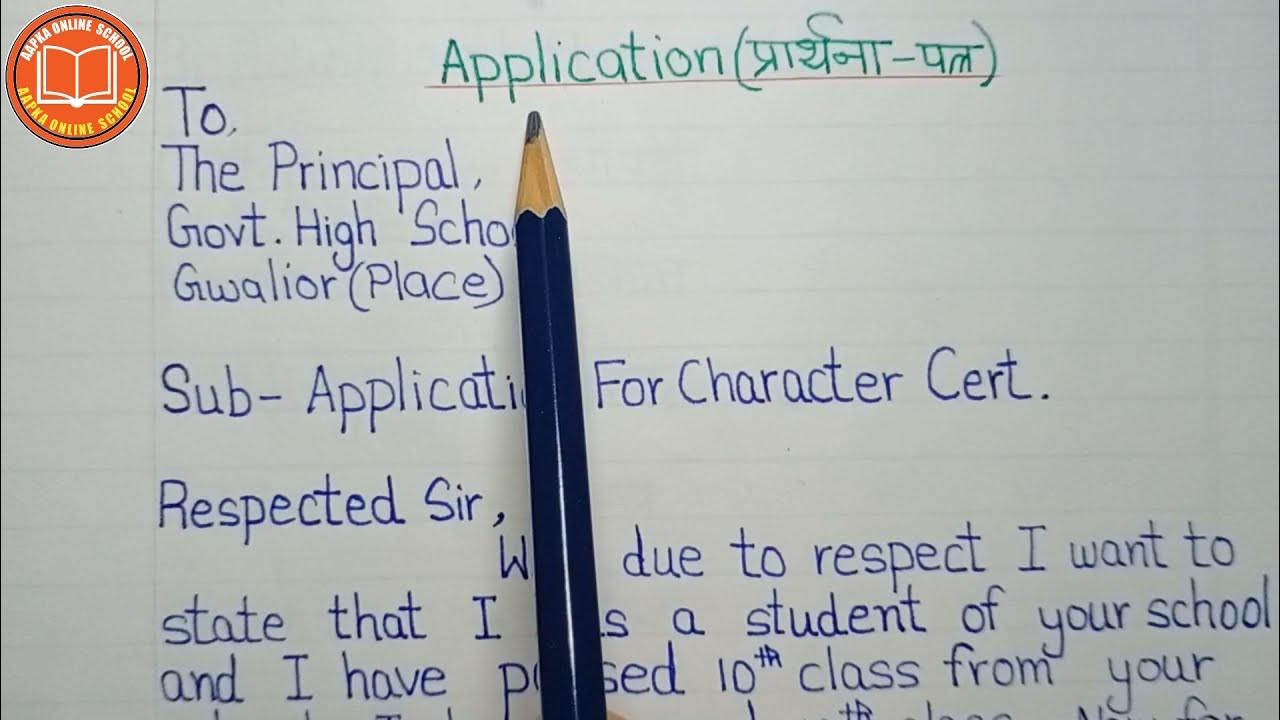 AAPKA ONLINE SCHOOL
AAPKA ONLINE SCHOOL
Application (प्रार्थना-पत्र)
To,
The Principal,
Govt. High Scho
Gwalior (Place)
Sub- Applicati For Character Cert.
Respected Sir,
due to respect I want to
state that I a student of your school
and I have 10th class from your
th class. Now for